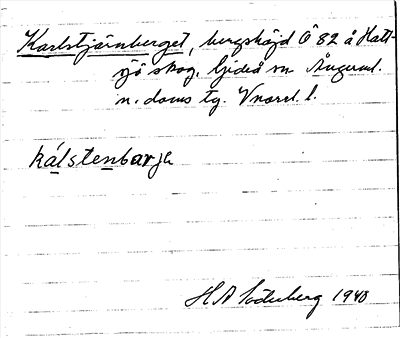 Karlstjärnberget, bergshöjd Ö 82 å Hatt-
sjö skog, Gideå sn Ångerml.
n. doms tg. Vnorrl. l.
kálstenbarja
H A Söderberg 1940